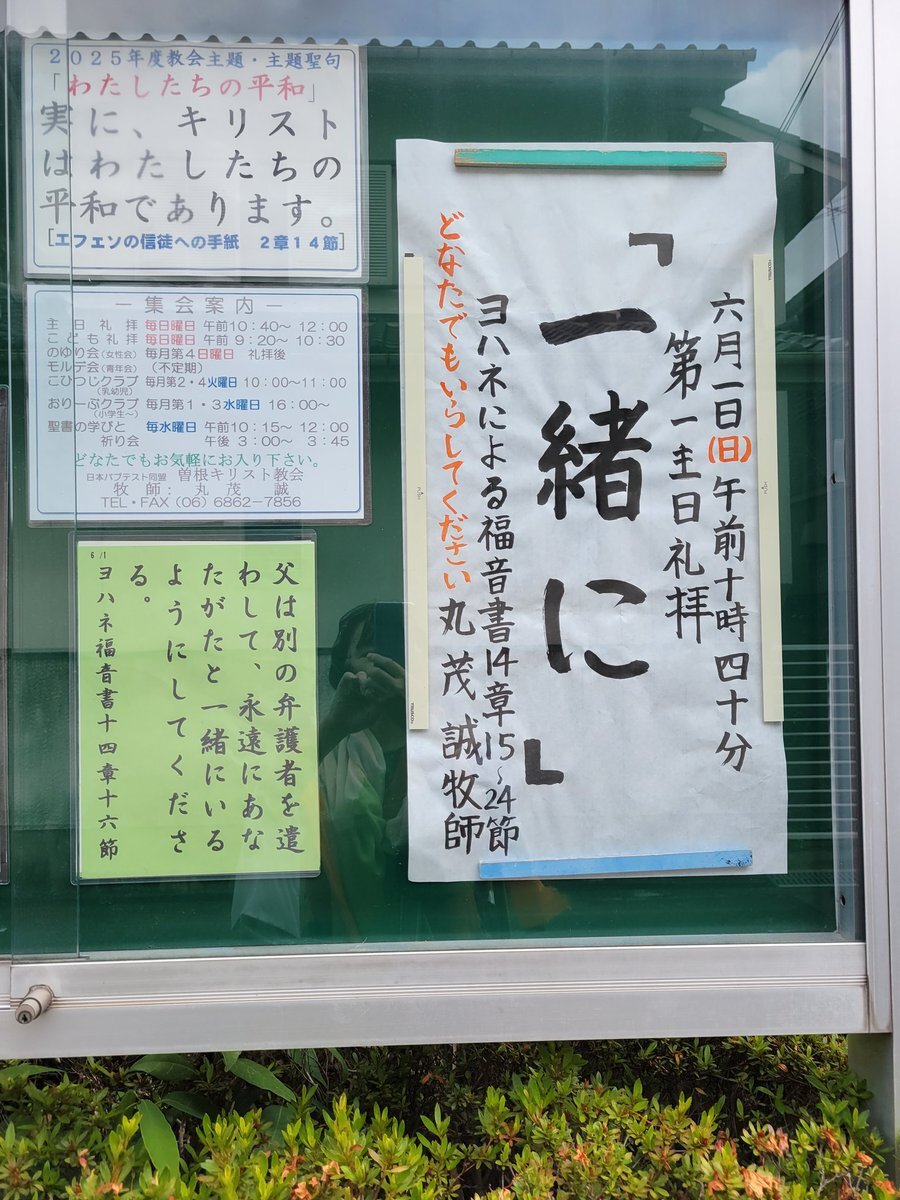 2025年度教会主題・主題聖句
「わたしたちの平和」
実に、キリスト
はわたしたちの
平和であります。
[エフェソの信徒への手紙 2章14節]
― 集会案内 ―
主日礼拝 毎日曜日 午前10:40～ 12:00
こども礼拝 毎日曜日 午前 9:20～ 10:30
のゆり会(女性会) 毎月第4日曜日 礼拝後
モルテ会(青年会) (不定期)
こひつじクラブ 毎月第2・4火曜日 10:00～11:00
(乳幼児)
おりーぶクラブ 毎月第1・3水曜日 16:00～
(小学生～)
聖書の学びと 毎水曜日 午前10:15～ 12:00
祈り会 午後 3:00～ 3:45
どなたでもお気軽にお入り下さい。
日本バプテスト同盟 曽根キリスト教会
牧師: 丸茂 誠
TEL・FAX (06) 6862-7856
6/1
父は別の弁護者を遣
わして、永遠にあな
たがたと一緒にいる
ようにしてくださ
る。
ヨハネ福音書十四章十六節
六月一日(日)午前十時四十分
第一主日礼拝
「一緒に」
ヨハネによる福音書14章15～24節
どなたでもいらしてください 丸茂誠牧師